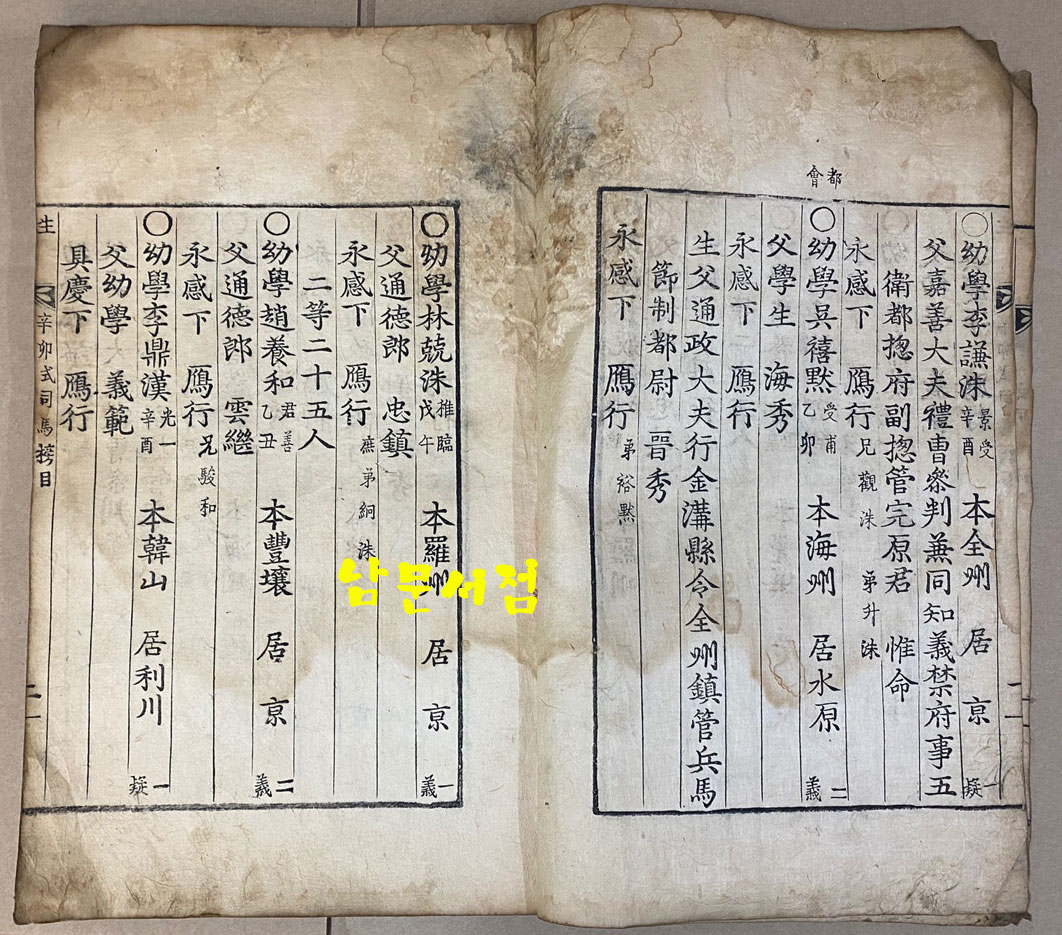 都會
○幼學李謙洙 景受 辛酉 本全州 居京 一疑
父嘉善大夫禮曹叅判兼同知義禁府事五
衛都摠府副摠管完原君 惟命
永感下 鴈行 兄觀洙 弟升洙
○幼學吳禧黙 受甫 乙卯 本海州 居水原 二義
父學生 海秀
永感下 鴈行
生父通政大夫行金溝縣令全州鎮管兵馬
節制都尉 晉秀
永感下 鴈行 弟裕黙
○幼學林兢洙 稚臨 戊午 本羅州 居京 一義
父通德郎 忠鎮
永感下 鴈行 庶弟絅洙
二等二十五人
○幼學趙養和 君善 乙丑 本豐壤 居京 二義
父通德郎 雲繼
永感下 鴈行 兄駿和
○幼學李鼎漢 光一 辛酉 本韓山 居利川 一疑
父幼學 義範
具慶下 鴈行
生 辛卯式司馬榜目 二
남문서점